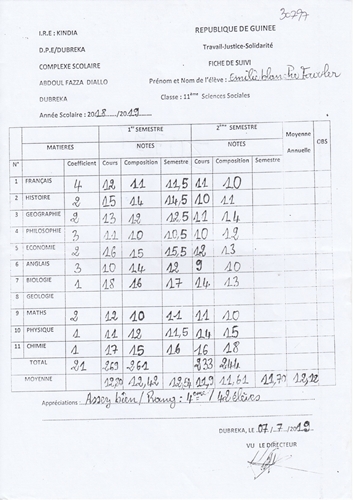 30297
I.R.E : KINDIA
REPUBLIQUE DE GUINEE
D.P.E/DUBREKA
Travail-Justice-Solidarité
COMPLEXE SCOLAIRE
FICHE DE SUIVI
ABDOUL FAZZA DIALLO
Prénom et Nom de l'élève :
DUBREKA
Classe : 11ème Sciences Sociales
Année Scolaire : 2018 /2019
1er SEMESTRE 2ème SEMESTRE Moyenne Annuelle OBS
MATIERES NOTES NOTES
N° Coefficient Cours Composition Semestre Cours Composition Semestre
1 FRANÇAIS 4 12 11 11,5 11 10
2 HISTOIRE 2 15 14 14,5 10 11
3 GEOGRAPHIE 2 13 12 12.5 11 14
4 PHILOSOPHIE 3 11 10 10,5 10 12
5 ECONOMIE 2 16 15 15,5 12 13
6 ANGLAIS 3 10 14 12 9 10
7 BIOLOGIE 1 18 16 17 14 13
8 GEOLOGIE
9 MATHS 2 12 10 11 11 10
10 PHYSIQUE 1 11 12 11,5 14 15
11 CHIMIE 1 17 15 16 16 18
TOTAL 21 269 261 233 244
MOYENNE 12,42 11,9 11,61 11,70
Appréciations : Assez bien / Rang : 4ème / 42 élèves
DUBREKA, le 07/7/2019
VU LE DIRECTEUR